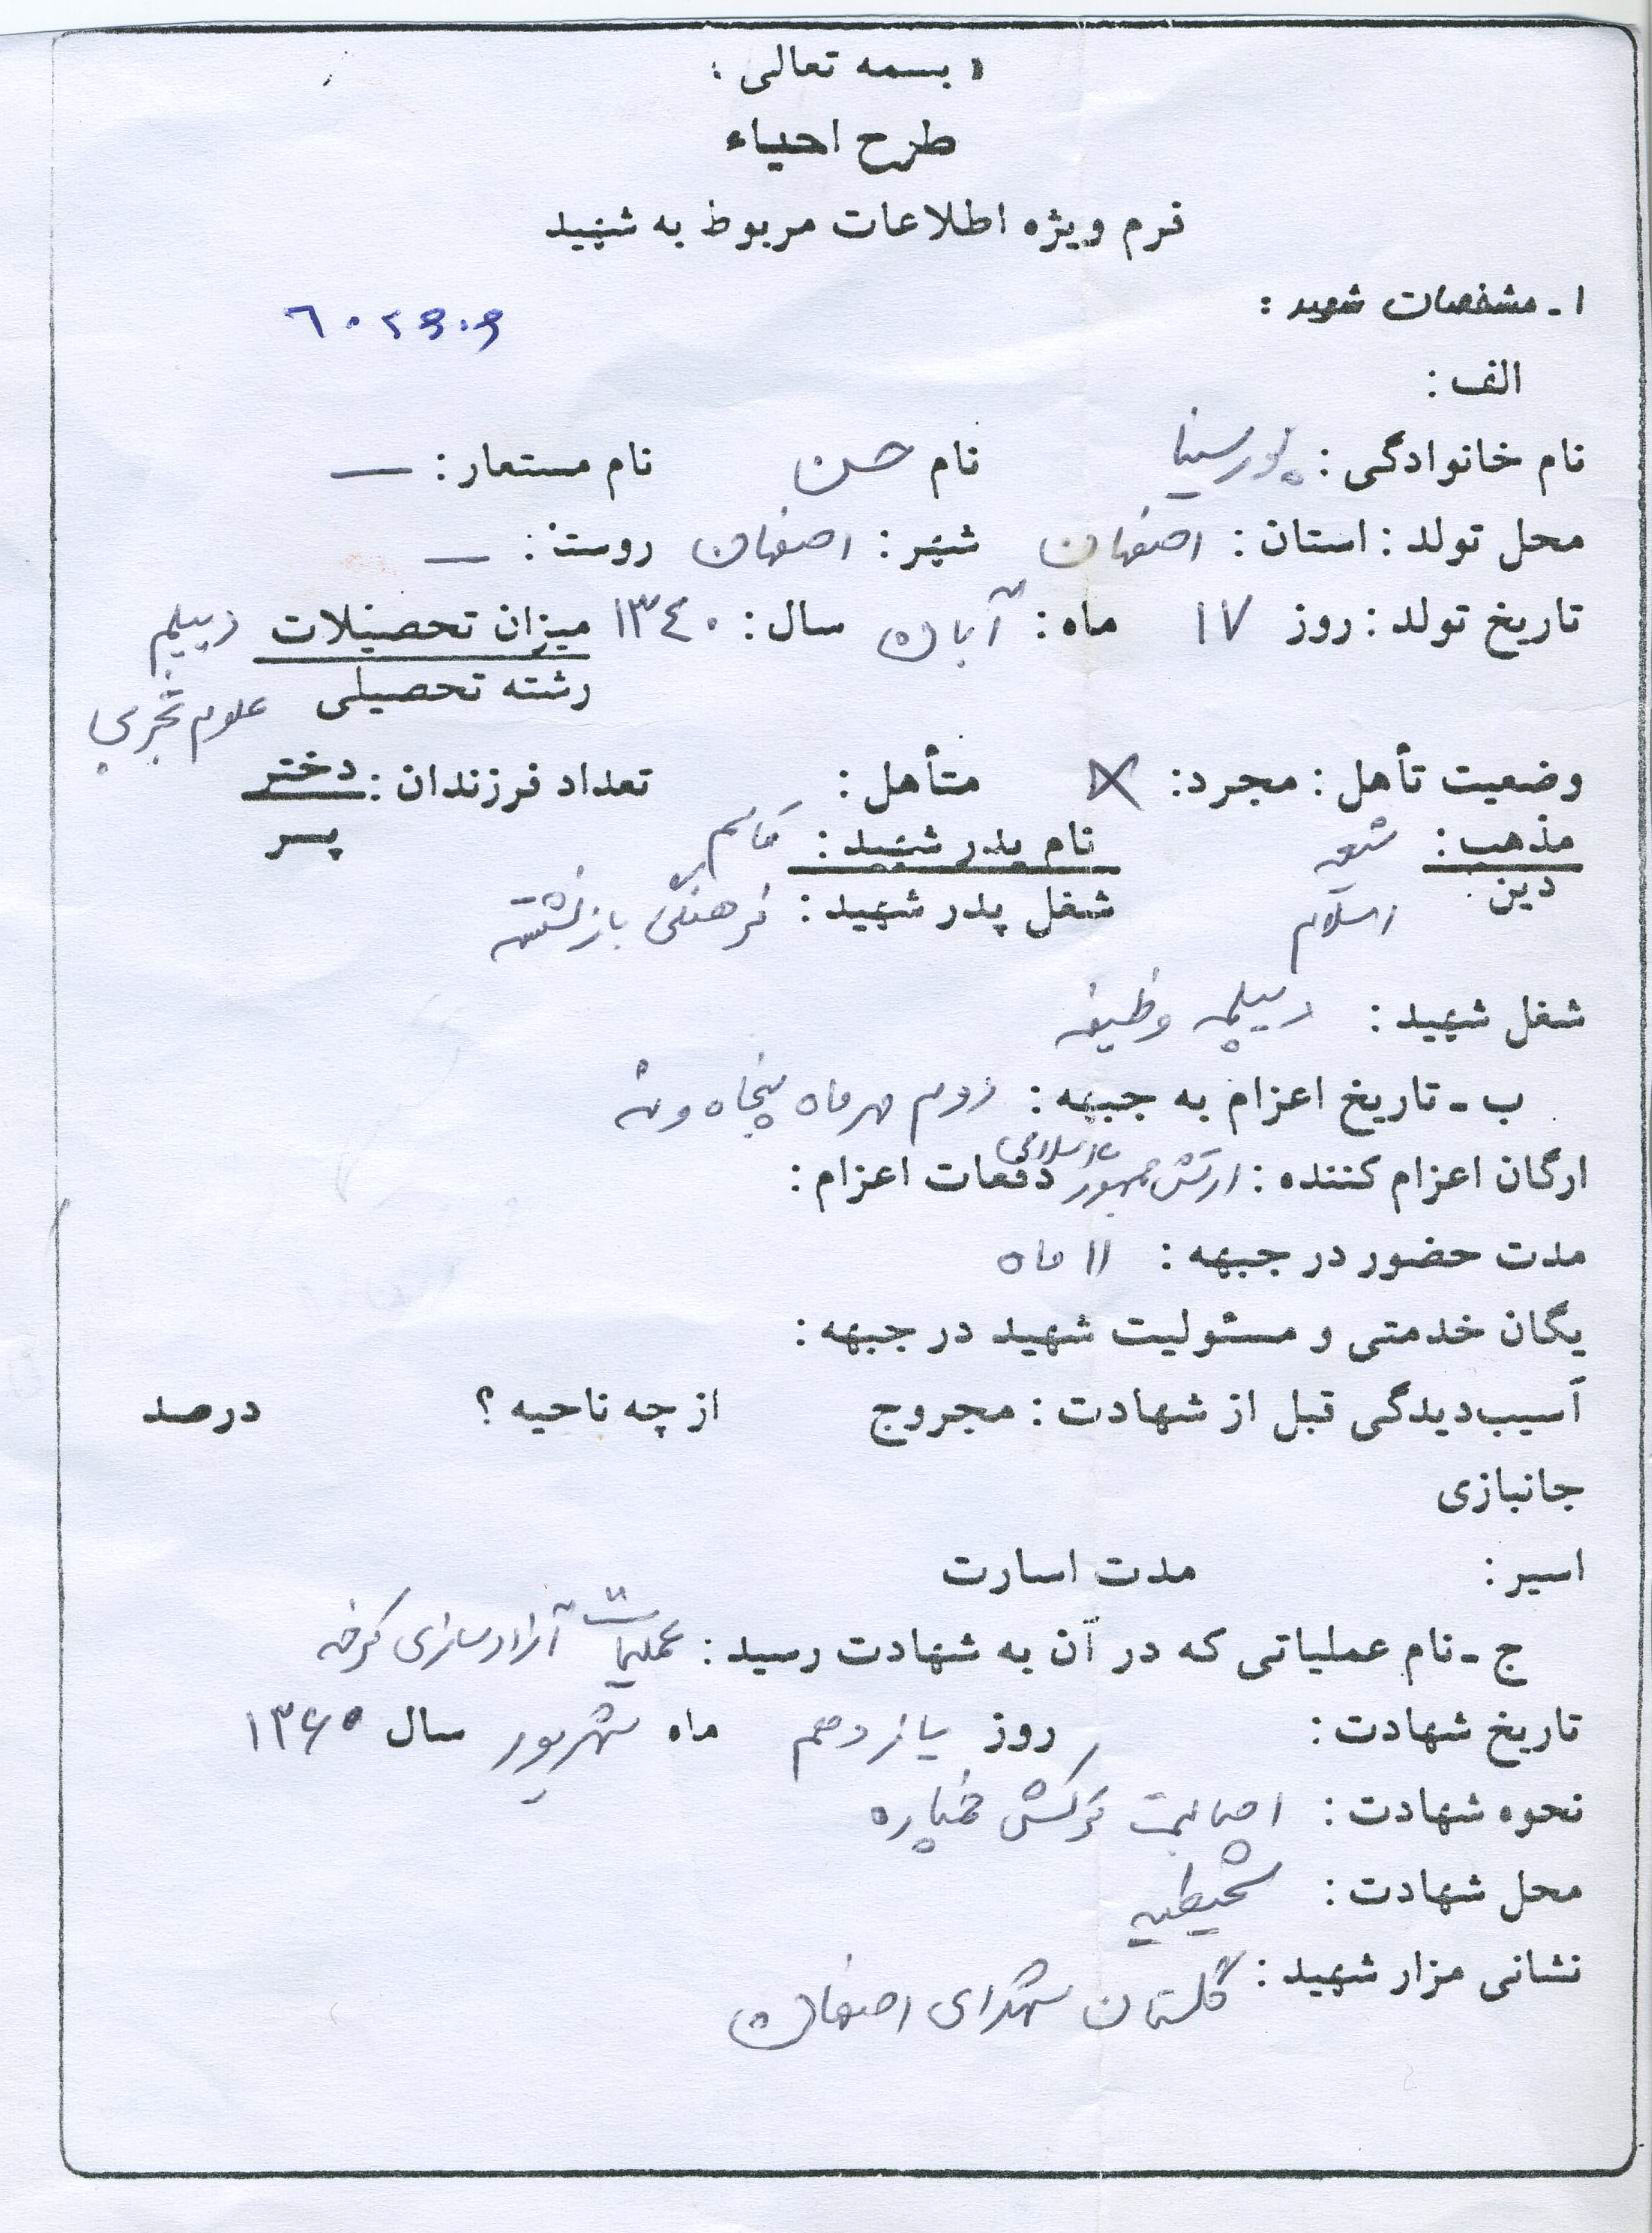 « بسمه تعالی »
طرح احیاء
فرم ویژه اطلاعات مربوط به شهید
۱ـ مشخصات شهید :
الف :
نام خانوادگی : پورسینا نام حسن نام مستعار : —
محل تولد : استان : اصفهان شهر : اصفهان روستا : —
تاریخ تولد : روز ۱۷ ماه : آبان سال : ۱۳۴۰ میزان تحصیلات دیپلم
رشته تحصیلی علوم تجربی
وضعیت تأهل : مجرد : X متأهل : تعداد فرزندان : دختر
پسر
مذهب : شیعه نام پدر شهید : قاسم
دین : اسلام شغل پدر شهید : فرهنگی بازنشسته
شغل شهید : دیپلمه وظیفه
ب ـ تاریخ اعزام به جبهه : دوم مهرماه پنجاه و نه
ارگان اعزام کننده : ارتش جمهوری اسلامی دفعات اعزام :
مدت حضور در جبهه : ۱۱ ماه
یگان خدمتی و مسئولیت شهید در جبهه :
آسیب‌دیدگی قبل از شهادت : مجروح از چه ناحیه ؟ درصد
جانبازی
اسیر : مدت اسارت
ج ـ نام عملیاتی که در آن به شهادت رسید : عملیات آزادسازی کرخه
تاریخ شهادت : روز یازدهم ماه شهریور سال ۱۳۶۰
نحوه شهادت : اصابت ترکش خمپاره
محل شهادت : شحیطیه
نشانی مزار شهید : گلستان شهدای اصفهان